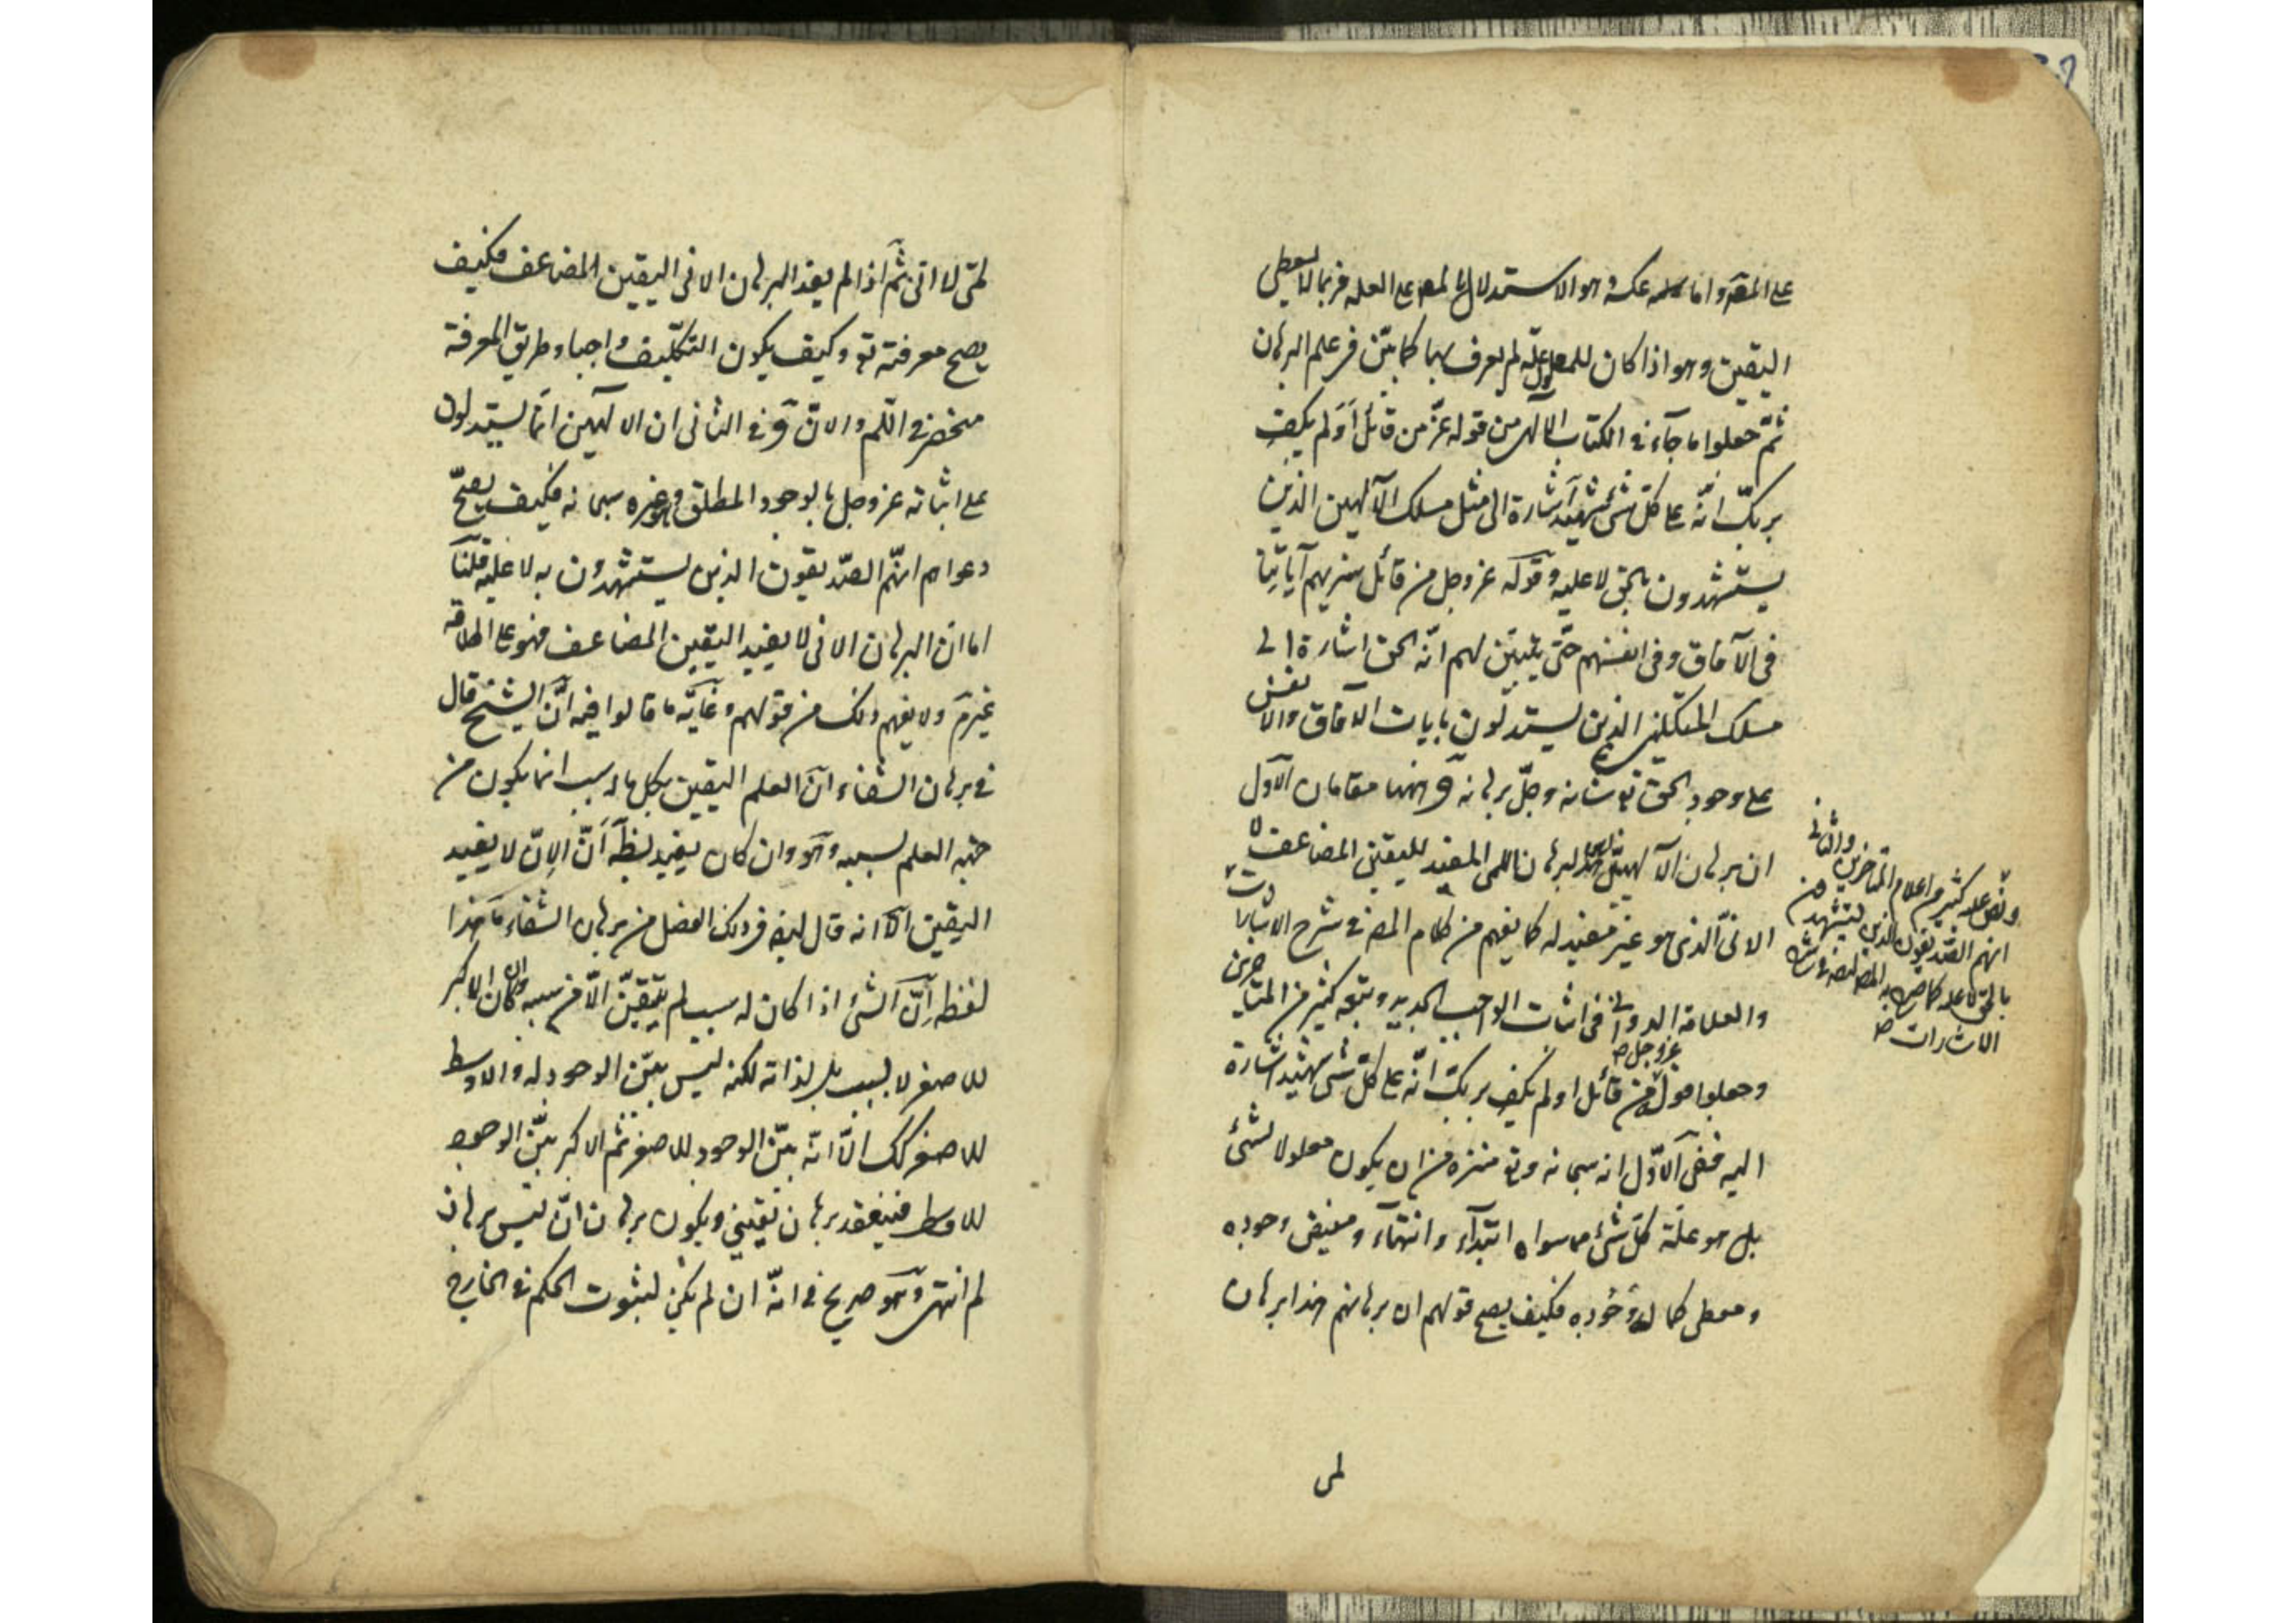 على المع واما عكسه وهو الاستدلال بالمع على العلة فربما لا يعطى
اليقين وهو اذا كان للمعلول علة لم يعرف بها كما بيّن فى علم البرهان
ثمّ جعلوا ما جآء فى الكتاب الالهى من قوله عزّ من قائل أَوَلم يكف
بربكّ انّه على كلّ شئ شهيد اشارة الى مثل مسلك الآلهيين الذين
يستشهدون بالحق لا عليه وقوله عز وجل من قائل سنريهم آياتنا
فى الآفاق وفى انفسهم حتّى يتبيّن لهم انّه الحق اشارة الى
مسلك المتكلمين الذين يستدلون بايات الافاق والانفس
على وجود الحق تع شانه وجلّ برهانه وههنا مقامان الاول
ان برهان الآلهيين هو البرهان اللمى المفيد لليقين المضاعف لا
الانىّ الذى هو غير مفيد له كما يفهم من كلام المص فى شرح الاشارات
والعلامة الدوانى فى اثبات الواجب الجديد وتبعه كثير من المتاخرين
وجعلوا قوله عز وجل من قائل اولم يكف بربكّ انّه على كلّ شئ شهيد اشارة
اليه ففى الاوّل انه سبحانه وتع منزه من ان يكون معلولا لشئ
بل هو علّة كلّ شئ مما سواه ابتدآء وانتهآء ومفيض وجوده
ومعطى كمال وجوده فكيف يصح قولهم ان برهانهم هذا برهان
لمى
والثانى
ونص عليه كثير من اعلام المتاخرين
انهم الصديقون الذين يستشهدون
بالحق لا عليه كما صرح به المص ايضا فى شرح
الاشارات صح
لمّى لا انى ثمّ اذا لم يفد البرهان الانى اليقين المضاعف فكيف
يصح معرفته تع وكيف يكون التكليف واجبا وطريق المعرفة
منحصر فى اللّم والانّ وفى الثانى ان الالهيين انّما يستدلون
على اثباته عز وجل بالوجود المطلق وهو غيره سبحانه فكيف يصحّ
دعواهم انهّم الصّديقون الذين يستشهدون به لا عليه قلنا
اما انّ البرهان الانى لا يفيد اليقين المضاعف فهو على اطلاقه
غيرمّ ولا يفهم ذلك من قولهم وغايّة ما قالوا فيه انّ الشيخ قال
فى برهان الشفاء انّ العلم اليقين بكل ما له سبب انما يكون من
جهة العلم بسببه وهو وان كان يفيد بظ‍ه أنّ الانّ لا يفيد
اليقين الّا انه قال ايض فى ذلك الفصل من برهان الشفاء ما هذا
لفظه انّ الشئ اذا كان له سبب لم يتيقنّ الّا من سببه وان كان الاكبر
للاصغر لا بسبب بل لذاته لكنه ليس بيّن الوجود له والاوسط
للاصغر كك الّا انّه بيّن الوجود للاصغر ثم الاكبر بيّن الوجود
للاوسط فينعقد برهان يقينى ويكون برهان انّ ليس برهان
لم انتهى وهو صريح فى انّه ان لم يكن لثبوت الحكم فى الخارج